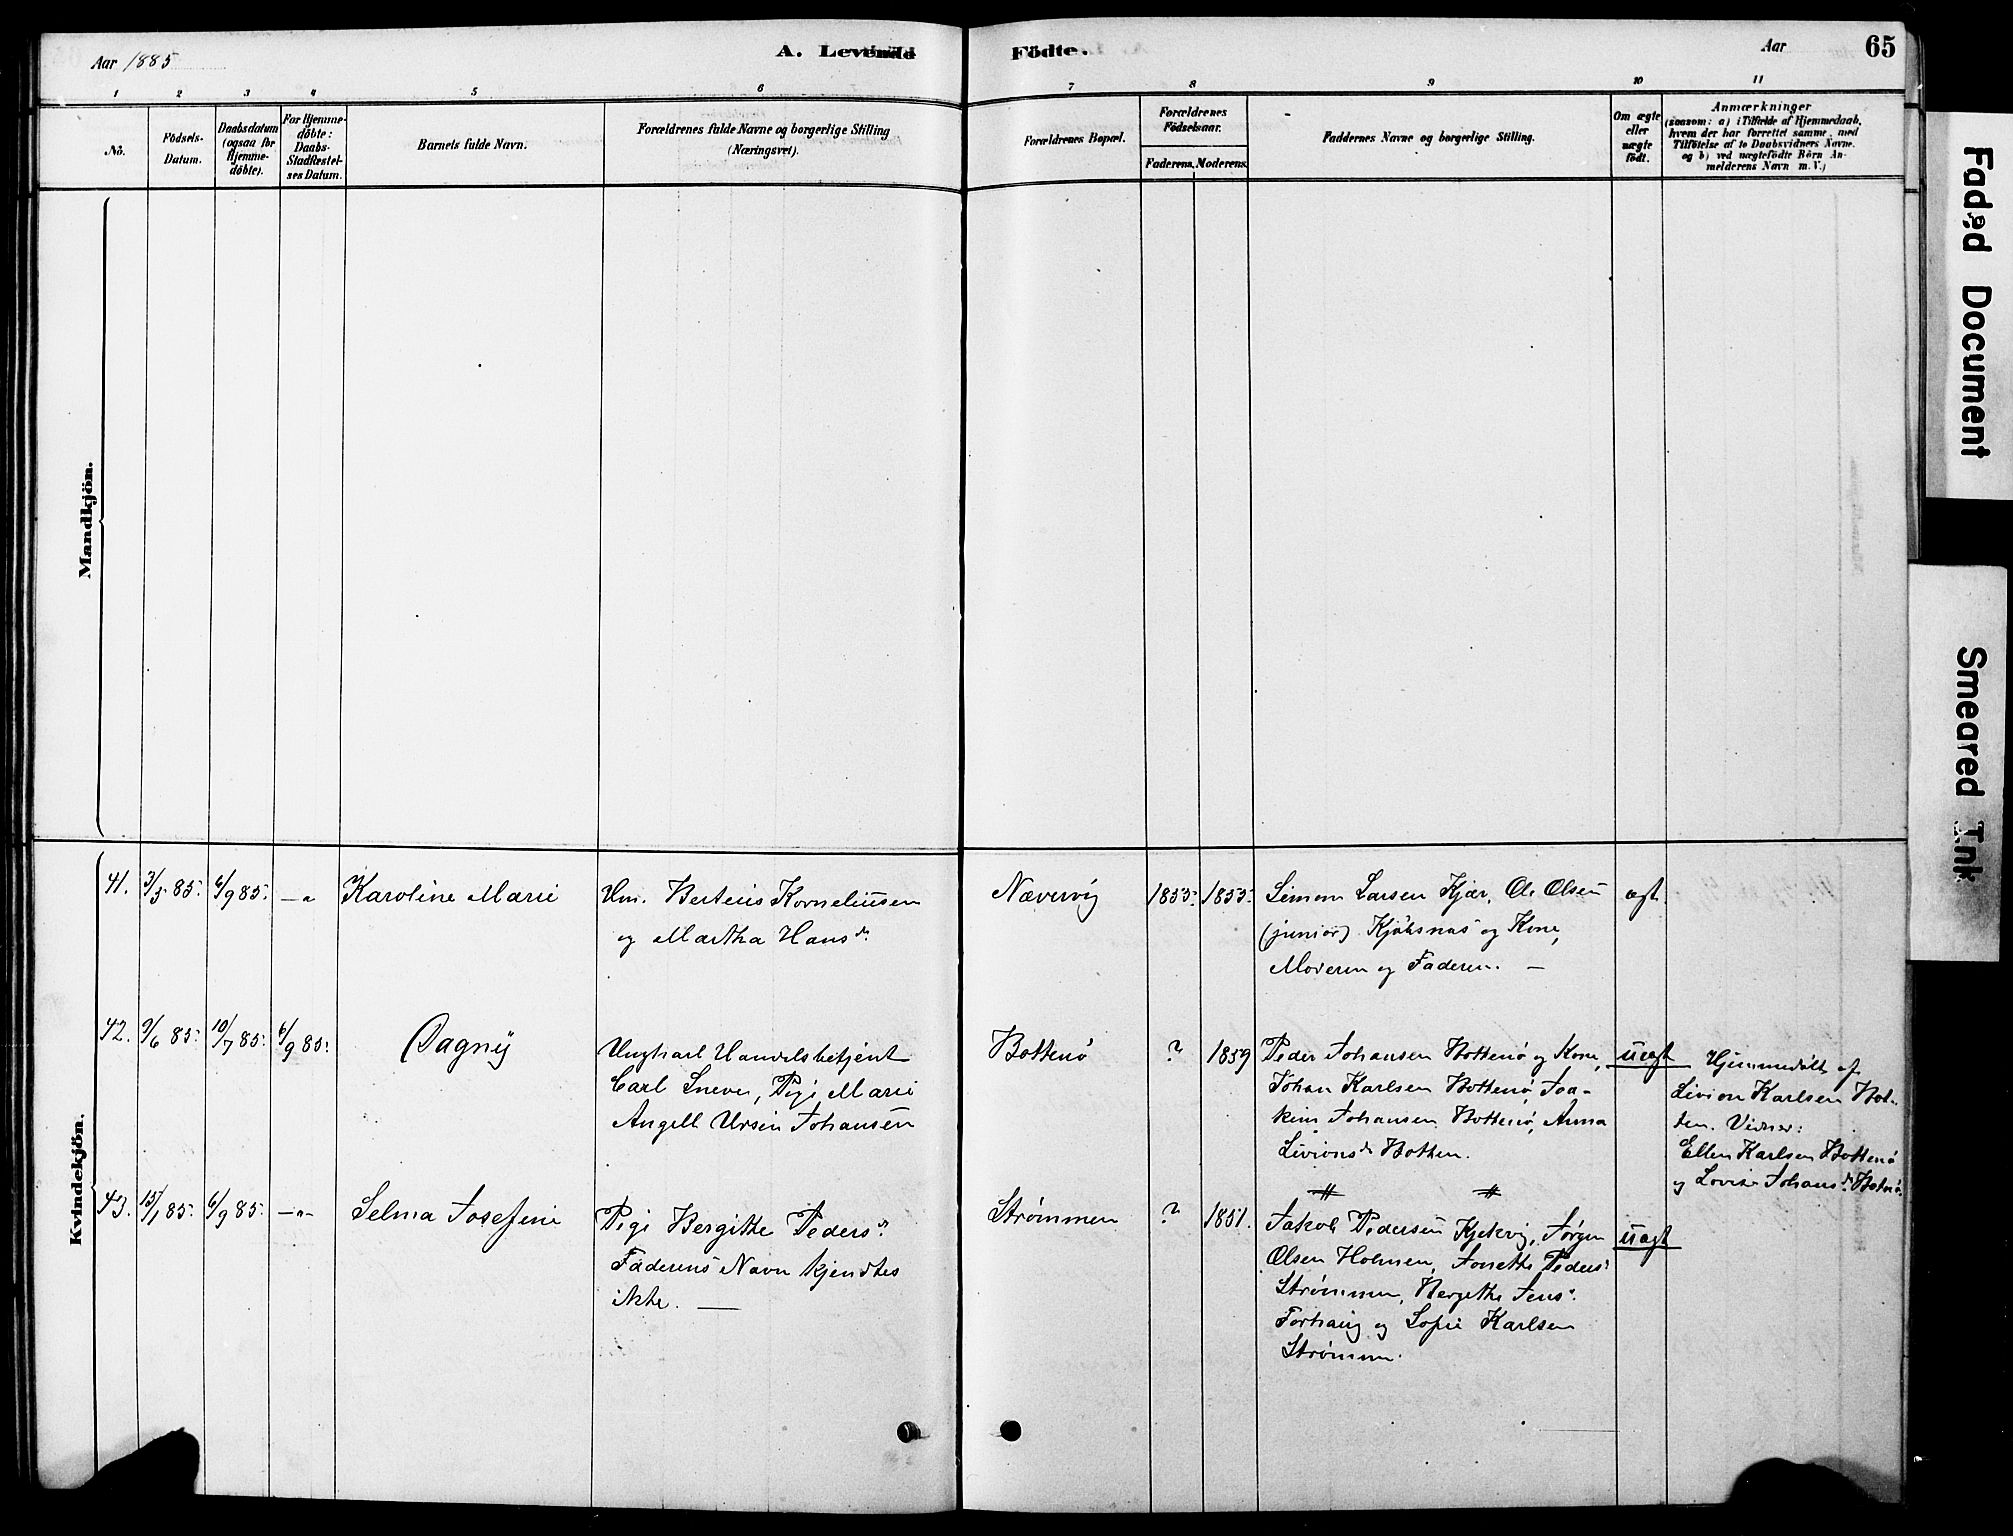 Aar 1885
A. Levende
Födte.
Aar
65
1 2 3 4 5 6 7 8 9 10 11
No.
Födsels-
Datum.
Daabsdatum
(ogsaa for
Hjemme-
döbte).
For Hjemme-
döbte:
Daabs-
Stadfæstel-
ses Datum.
Barnets fulde Navn.
Forældrenes fulde Navne og borgerlige Stilling
(Næringsvei).
Forældrenes Bopæl.
Forældrenes
Födselsaar.
Faderens. Moderens.
Faddernes Navne og borgerlige Stilling.
Om ægte
eller
uægte
födt.
Anmærkninger
(saasom: a) i Tilfælde af Hjemmedaab,
hvem der har forrettet samme, med
Tilföielse af to Daabsvidners Navne.
og b) ved uægtefödte Börn An-
melderens Navn m. V.)
Mandkjön.
Kvindekjön.
41. 3/5 85. 6/9 85. —"
Karoline Marie
Um. Berteus Korneliusen
og Martha Hansd.
Nævervig
1855. 1855.
Simon Larsen Kjær, Ole Olsen
(junior) Kjøksnæs og Kone,
Moderen og Faderen. —
ægt.
42. 9/6 85. 10/7 85. 6/9 85.
Dagny
Ungkarl Handelsbetjent
Carl Sneve, Pige Marie
Angell Ursin Johansen
Bottenø
? 1859
Peder Johansen Bottenø og Kone,
Johan Karlsen Bottenø, Joa-
kim Johansen Bottenø, Anna
Livionsd Botten.
uægt
Hjemmedøbt af
Livion Karlsen Bot-
ten. Vidner:
Ellen Karlsen Bottenø
og Lovise Johansd. Botnø.
43. 15/1 85. 6/9 85. —"—
Selma Josefine
Pige Bergitte Pedersd.
Faderens Navn kjendtes
ikke. —
Strømmen
? 1851.
Jakob Pedersen Kjelvig, Jørgen
Olsen Holmen, Jonette Pedersd
Strømmen, Bergethe Jensd.
Forhaug og Sofie Karlsen
Strømmen.
uægt
Faded Document
Smeared Ink